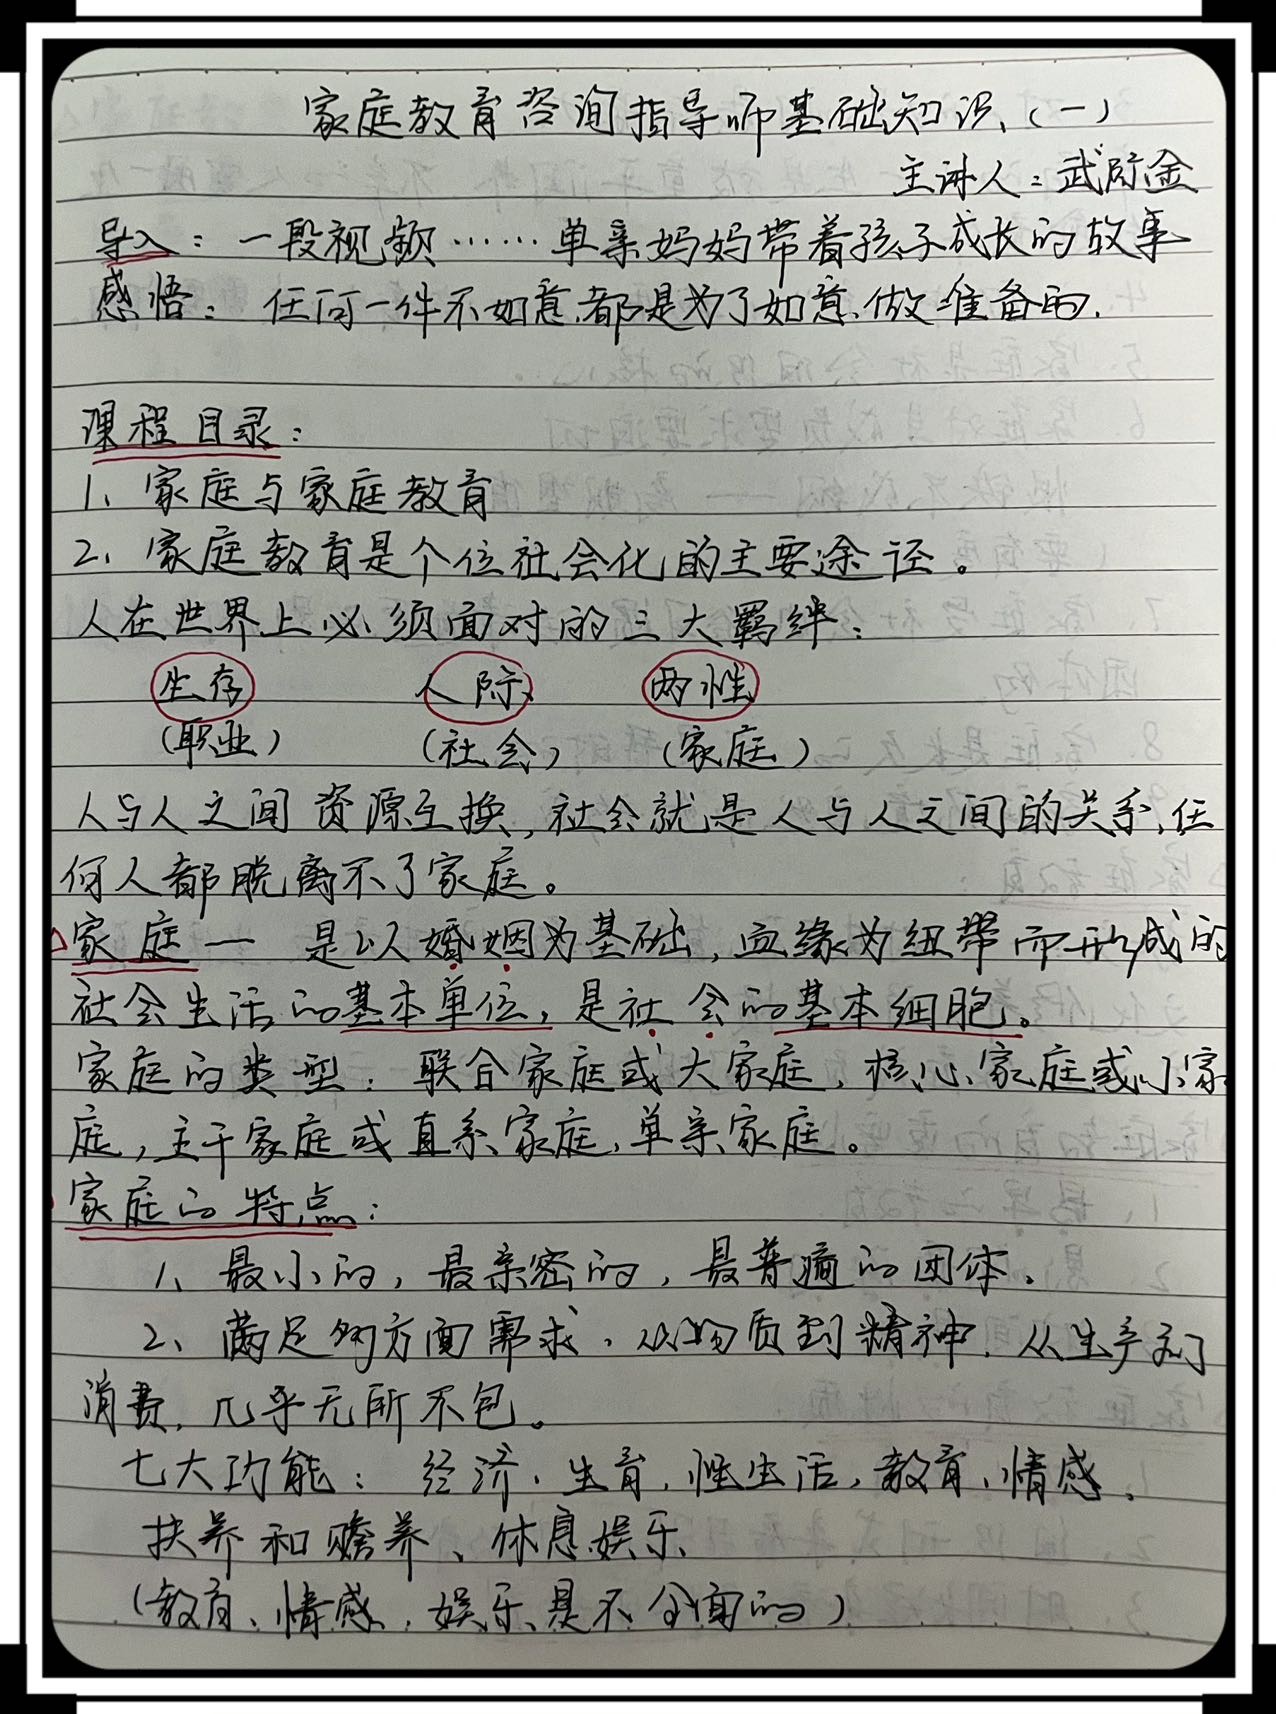 家庭教育咨询指导师基础知识、(一)
主讲人：武阶金
导入：一段视频……单亲妈妈带着孩子成长的故事
感悟：任何一件不如意,都是为了如意,做准备的.
课程目录：
1、家庭与家庭教育
2、家庭教育是个位社会化的主要途径。
人在世界上必须面对的三大羁绊：
生存 人际 两性
(职业) (社会) (家庭)
人与人之间资源互换,社会就是人与人之间的关系,任
何人都脱离不了家庭。
家庭一 是以婚姻为基础,血缘为纽带而形成的
社会生活的基本单位,是社会的基本细胞。
家庭的类型：联合家庭或大家庭,核心家庭或小家
庭,主干家庭或直系家庭,单亲家庭。
家庭的特点：
1、最小的,最亲密的,最普遍的团体.
2、满足多方面需求,从物质到精神.从生产到
消费,几乎无所不包。
七大功能：经济、生育,性生活,教育、情感、
扶养和赡养、休息娱乐
(教育、情感,娱乐是不全面的)